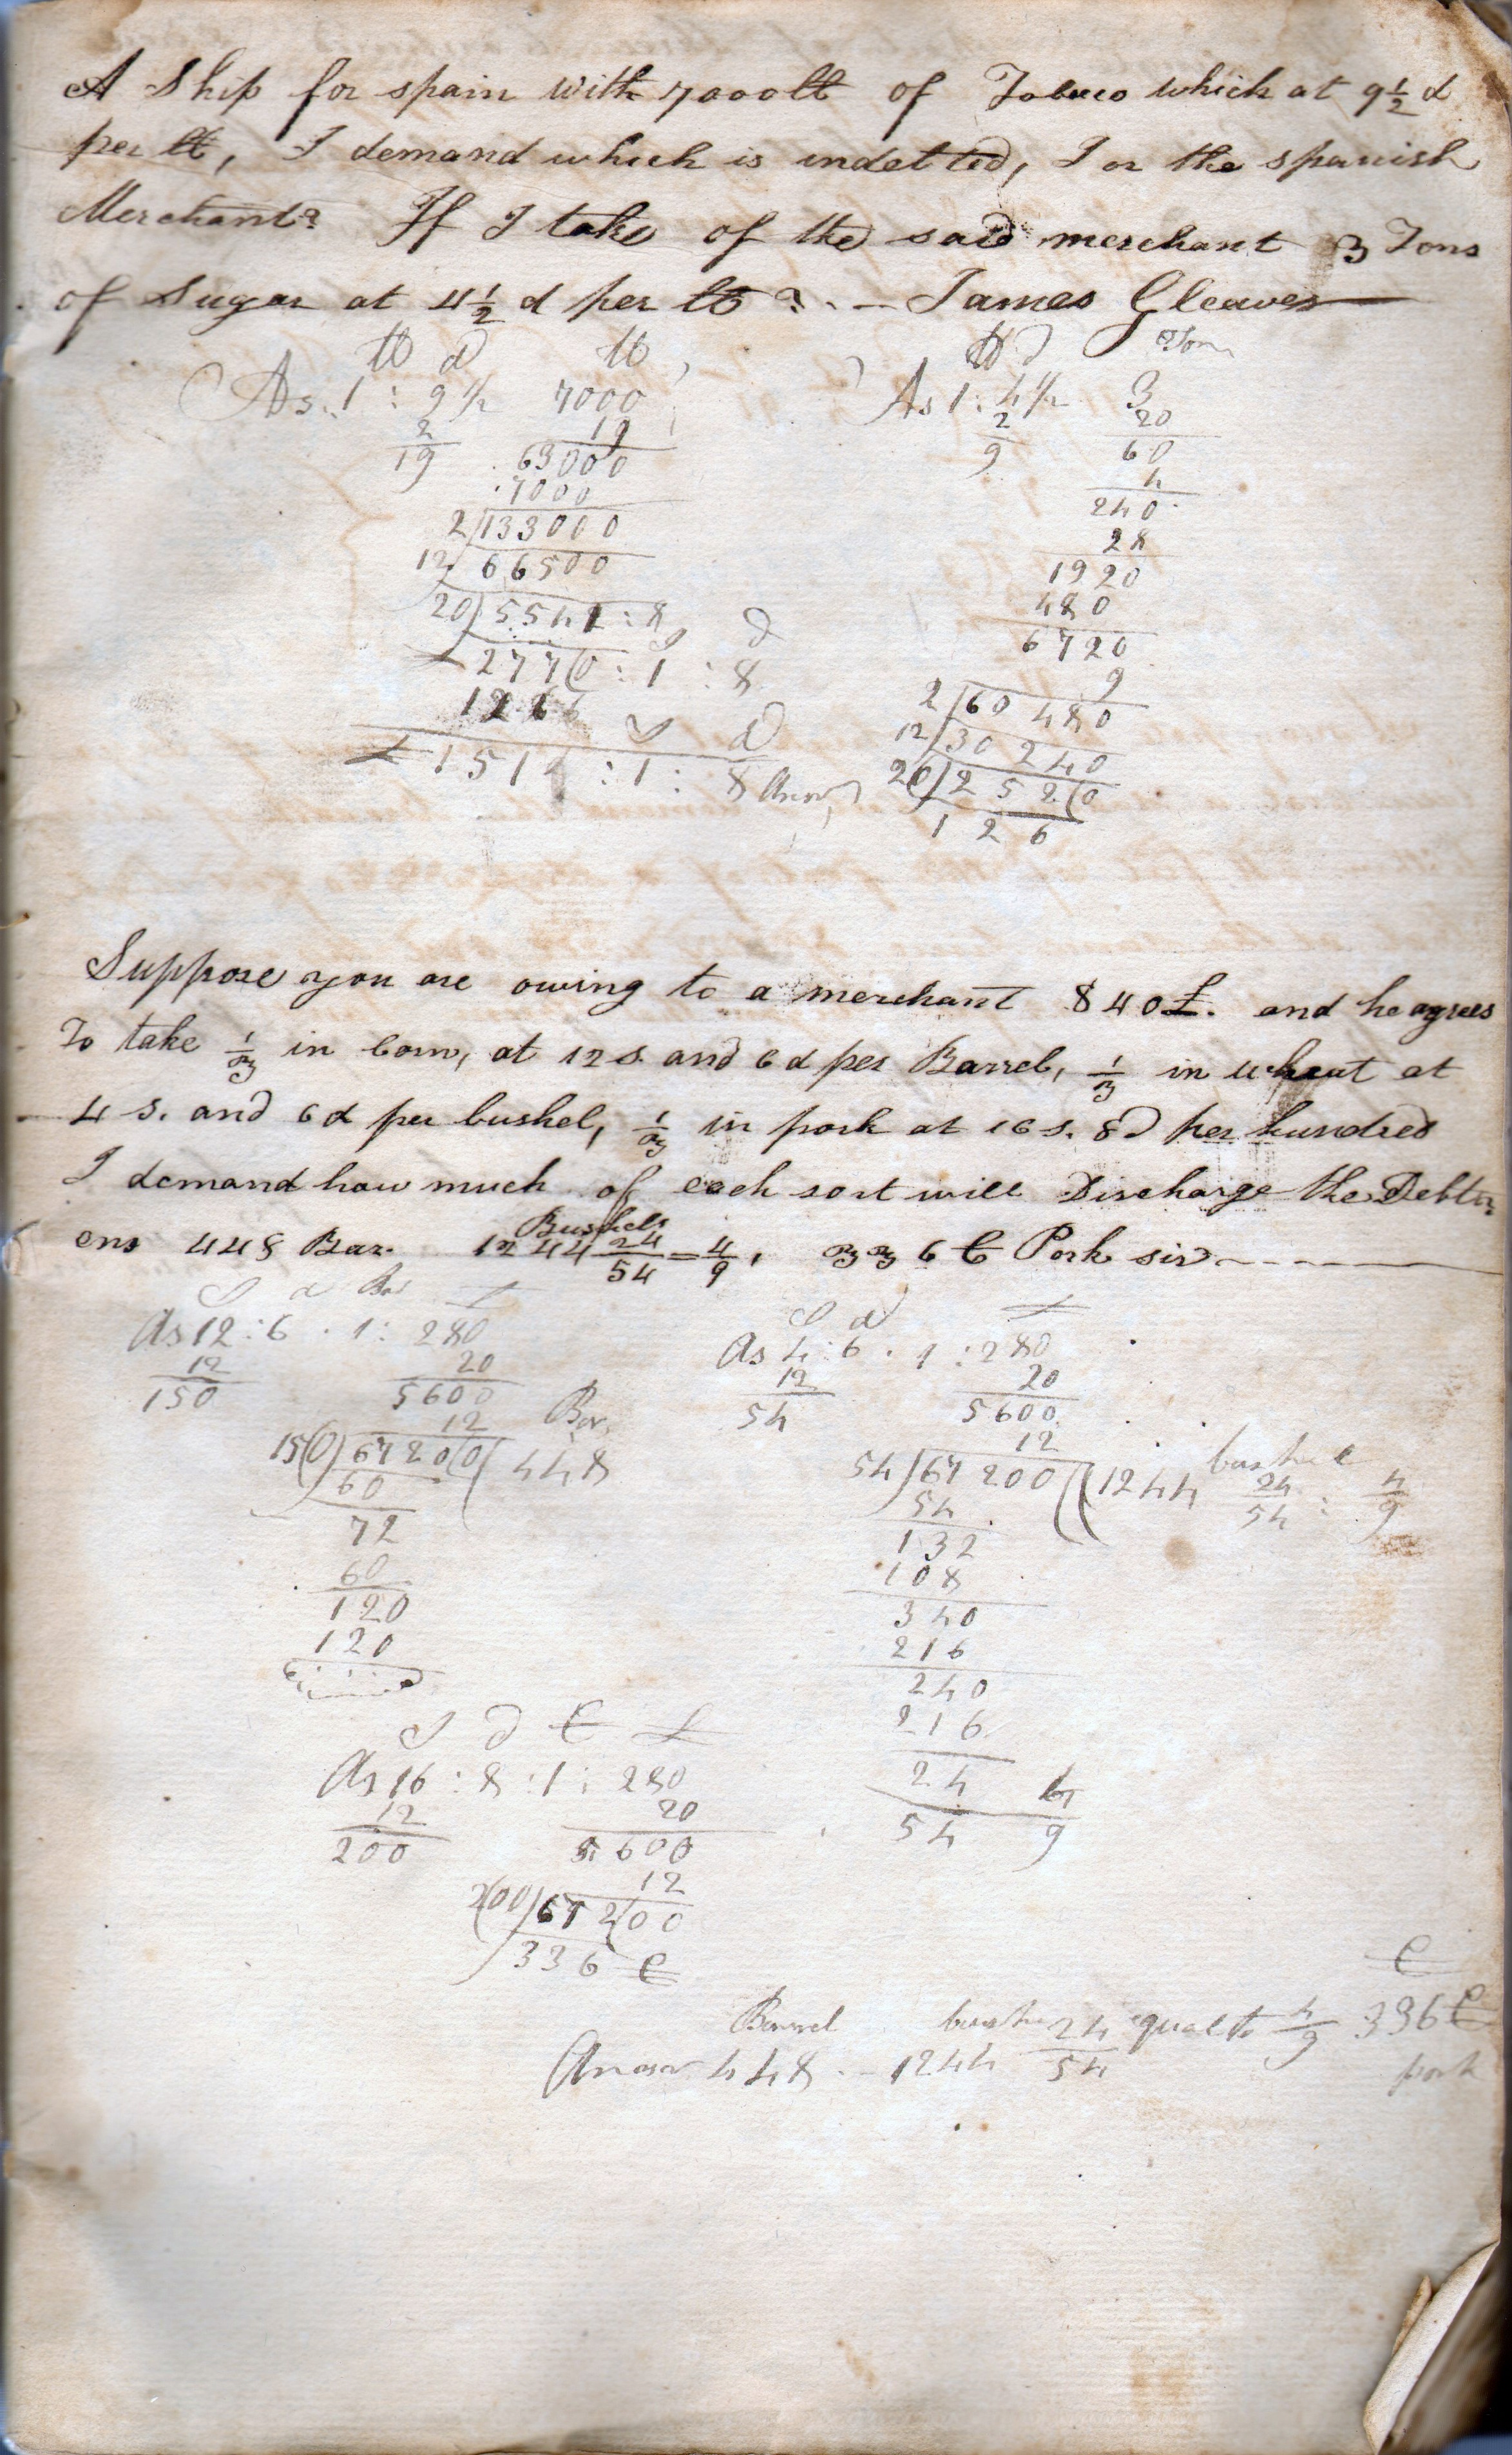 A Ship for spain with 7000 lb of Tobaco which at 9 1/2 d
per lb, I demand which is indetted, I or the spanish
Merchant? If I take of the said merchant 3 Tons
of Sugar at 4 1/2 d per lb? James Gleaves
lb d lb
As 1 : 9 1/2 7000
2 19
19 63000
7000
2)133000
12)66500
20)5541:8
s d
£ 277(0:1:8
126
s d
£ 151:1:8 Answ
lb d Ton
As 1 : 4 1/2 3
2 20
9 60
4
240
28
1920
480
6720
9
2)60480
12)30240
20)252(0
126
Suppose you are owing to a merchant 840£. and he agrees
To take 1/3 in corn, at 12 s. and 6 d per Barrel, 1/3 in wheat at
4 s. and 6 d per bushel, 1/3 in pork at 16 s. 8 d per hundred
I demand how much of each sort will Discharge the Debt
ens 448 Bar. 1244 24/54 = 4/9, Bushels 336 C Pork sir
s d Bar £
As 12:6 . 1 : 280
12 20
150 5600
12 Bar.
15(0)6720(0(448
60
72
60
120
120
s d £
As 4:6 . 1 : 280
12 20
54 5600
12 bushel
54)67200(1244 24/54 : 4/9
54
132
108
340
216
240
216
24 4
54 9
s d C £
As 16 : 8 : 1 : 280
12 20
200 5600
12
2(00)672(00
336 C
Barrel bush C
Answr 448 - 1244 24/54 equal to 4/9 336 C
pork